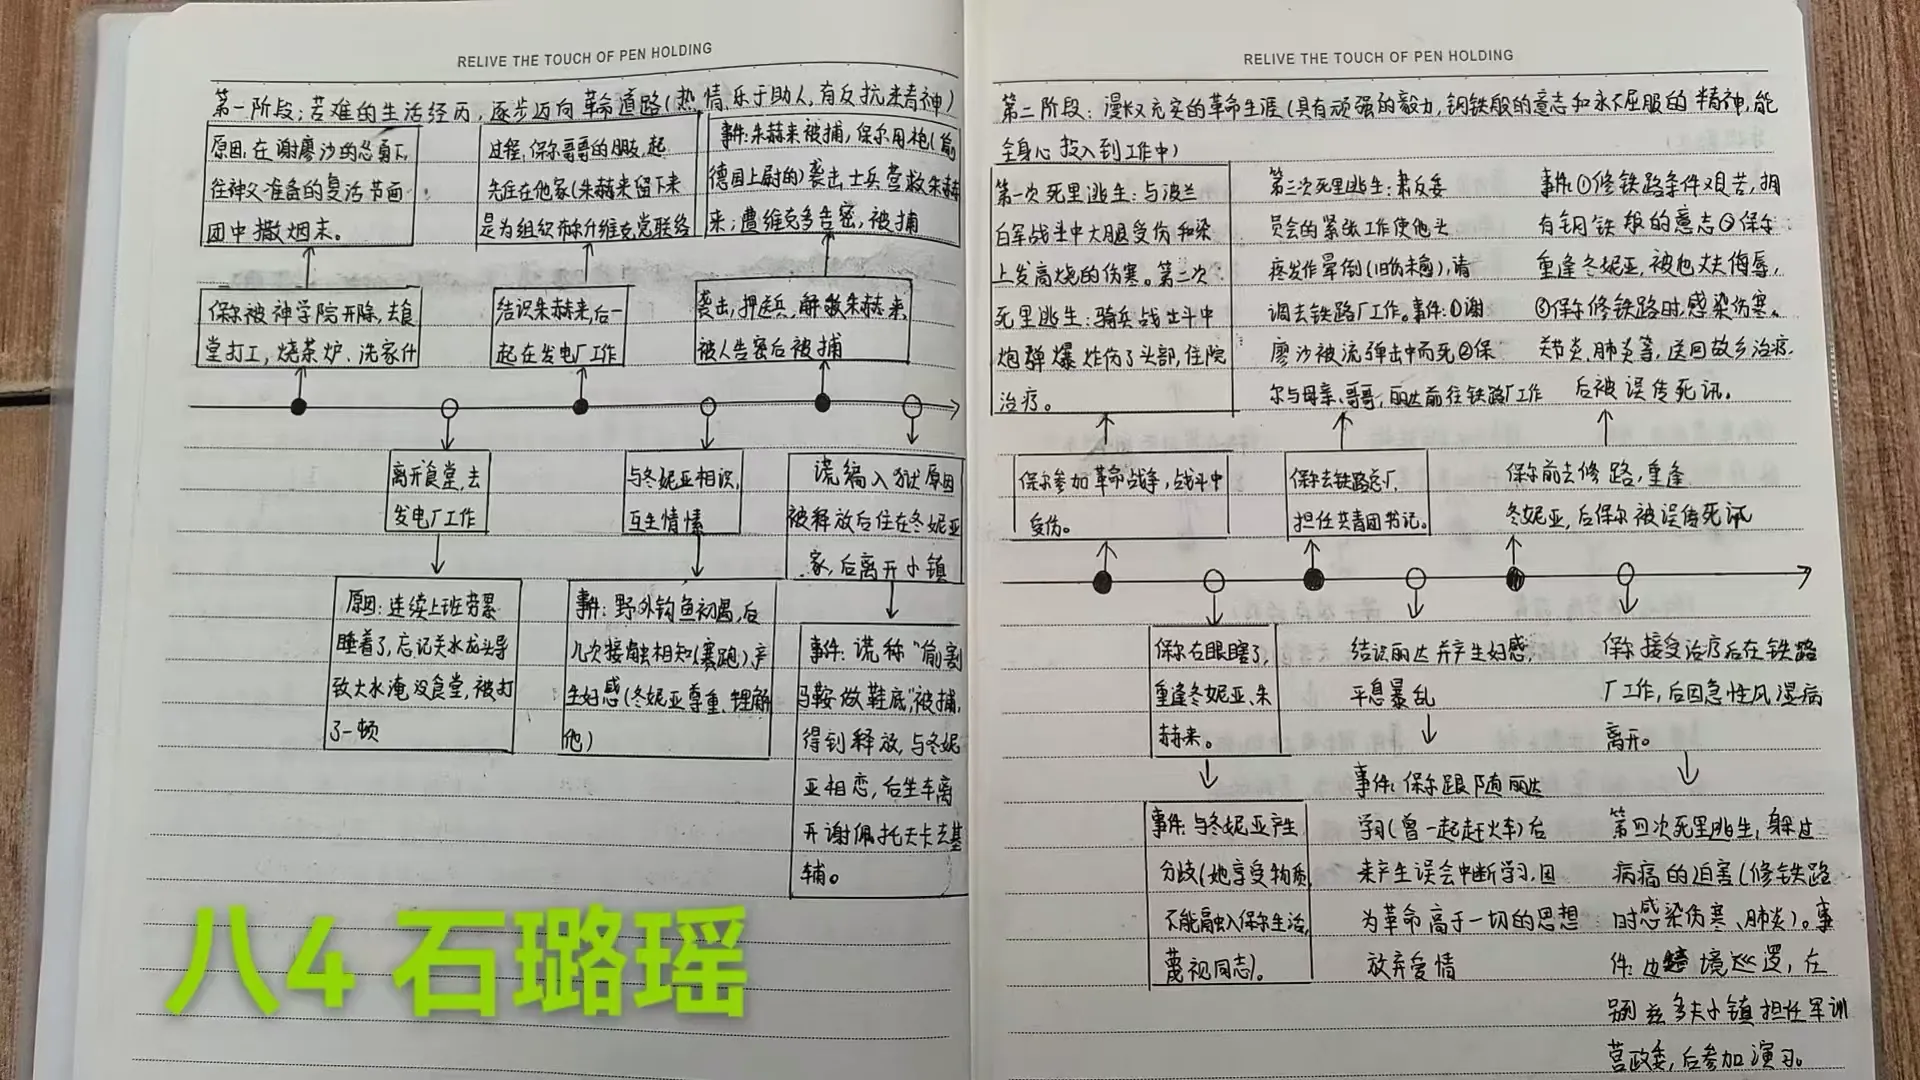 RELIVE THE TOUCH OF PEN HOLDING
第一阶段：苦难的生活经历，逐步迈向革命道路(热情、乐于助人，有反抗精神)
原因：在谢廖沙的怂恿下，
往神父准备的复活节面
团中撒烟末。
过程：保尔哥哥的朋友，起
先住在他家(朱赫来留下来
是为组织布尔什维克党联络
事件：朱赫来被捕，保尔用枪(偷
德国上尉的)袭击士兵营救朱赫
来；遭维克多告密，被捕
保尔被神学院开除，去食
堂打工，烧茶炉、洗家什
结识朱赫来，后一
起在发电厂工作
袭击，押送兵，解救朱赫来，
被人告密后被捕
离开食堂，去
发电厂工作
与冬妮亚相识，
互生情愫
谎编入狱原因
被释放后住在冬妮亚
家，后离开小镇
原因：连续上班劳累
睡着了，忘记关水龙头导
致大水淹没食堂，被打
了一顿
事件：野外钓鱼初遇，后
几次接触相知(赛跑)，产
生好感(冬妮亚尊重、理解
他)
事件：谎称“偷割
马鞍做鞋底”被捕，
得到释放，与冬妮
亚相恋，后坐车离
开谢佩托夫卡去基
辅。
八4 石璐瑶
RELIVE THE TOUCH OF PEN HOLDING
第二阶段：漫长又充实的革命生涯(具有顽强的毅力，钢铁般的意志和永不屈服的精神，能
全身心投入到工作中)
第一次死里逃生：与波兰
白军战斗中大腿受伤和染
上发高烧的伤寒。第二次
死里逃生：骑兵战斗中
炮弹爆炸伤了头部，住院
治疗。
第三次死里逃生：肃反委
员会的紧张工作使他头
疼发作晕倒(旧伤未愈)，请
调去铁路厂工作。事件：①谢
廖沙被流弹击中而死②保
尔与母亲、哥哥，丽达前往铁路厂工作
事件：①修铁路条件艰苦，拥
有钢铁般的意志②保尔
重逢冬妮亚，被他丈夫侮辱，
③保尔修铁路时，感染伤寒、
关节炎、肺炎等，送回故乡治疗，
后被误传死讯。
保尔参加革命战争，战斗中
受伤。
保尔去铁路总厂，
担任共青团书记。
保尔前去修路，重逢
冬妮亚，后保尔被误传死讯
保尔右眼瞎了，
重逢冬妮亚、朱
赫来。
结识丽达并产生好感，
平息暴乱
保尔接受治疗后在铁路
厂工作，后因急性风湿病
离开。
事件：与冬妮亚产生
分歧(她享受物质，
不能融入保尔生活，
蔑视同志)。
事件：保尔跟随丽达
学习(曾一起赶火车)后
来产生误会中断学习，因
为革命高于一切的思想
放弃爱情
第四次死里逃生，躲过
病痛的迫害(修铁路
时感染伤寒、肺炎)。事
件：边境巡逻，在
别兹多夫小镇担任军训
营政委，后参加演习。